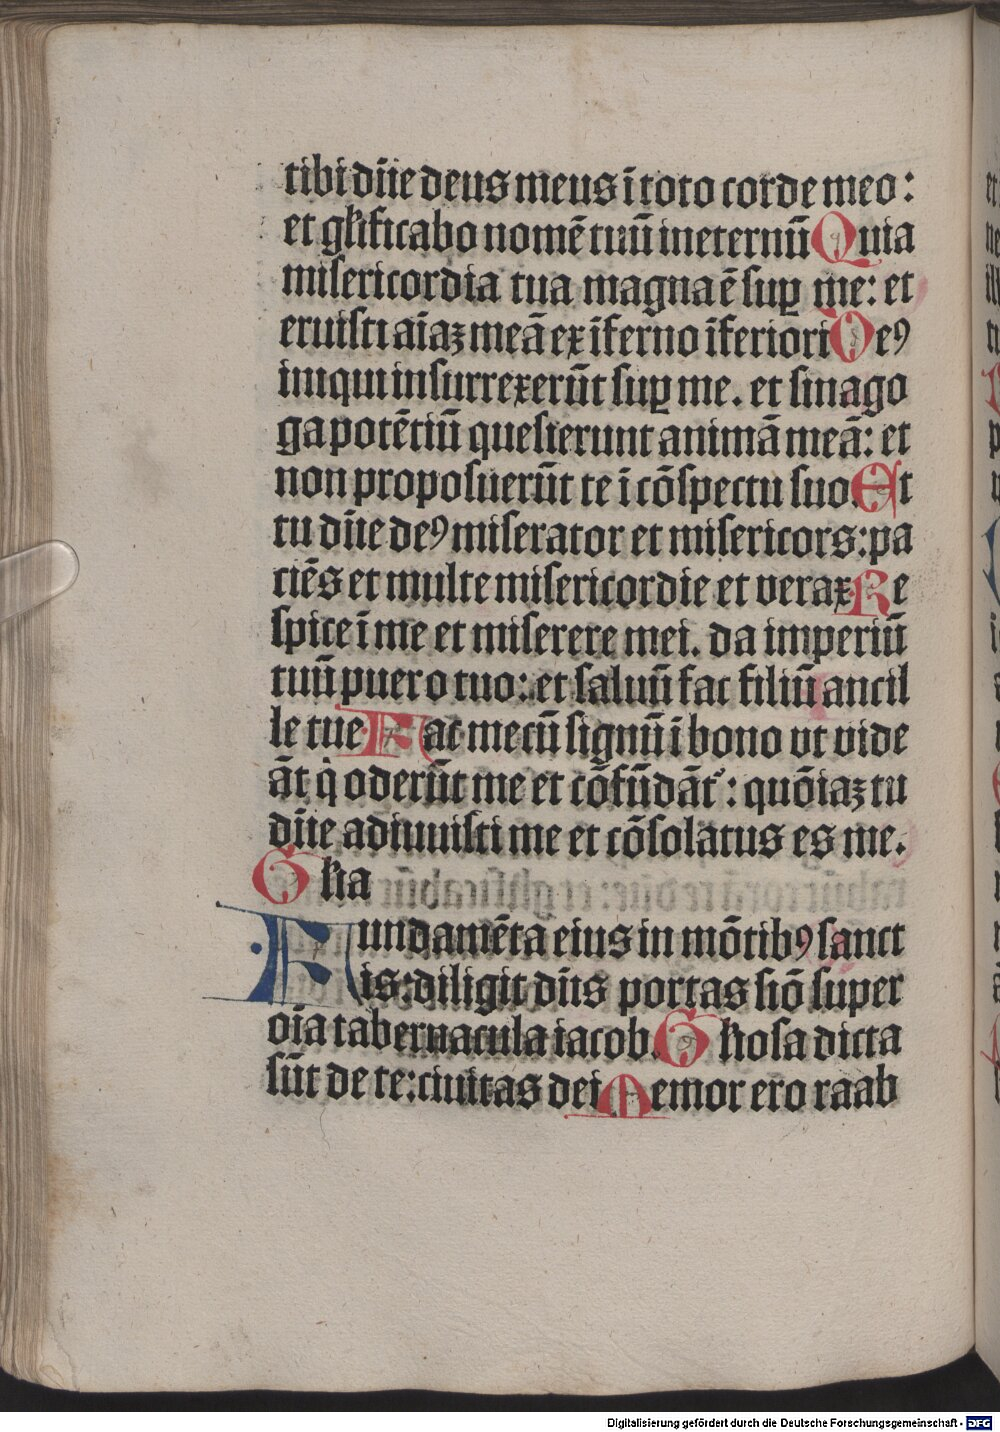 tibi dn̄e deus meus ī toto corde meo:
et gl̄ificabo nomē tuū ineternū Quia
misericordia tua magna ē suꝑ me: et
eruisti aīaꝫ meā ex īferno īferiori Deꝰ
iniqui insurrexerūt suꝑ me. et sinago
ga potētiū quesierunt animā meā: et
non proposuerūt te ī cōspectu suo. Et
tu dn̄e deꝰ miserator et misericors: pa
ciēs et multe misericordie et verax Re
spice ī me et miserere mei. da imperiū
tuū puero tuo: et saluū fac filiū ancil
le tue Fac mecū signū ī bono vt vide
āt q̇ oderūt me et cōfūdāt᷑: quōiaꝫ tu
dn̄e adiuuisti me et cōsolatus es me.
Gl̄ia
Fundamēta eius in mōtibꝰ sanct
is: diligit dn̄s portas siō super
oīa tabernacula iacob. Gl̄iosa dicta
sūt de te: ciuitas dei Memor ero raab
Digitalisierung gefördert durch die Deutsche Forschungsgemeinschaft - DFG